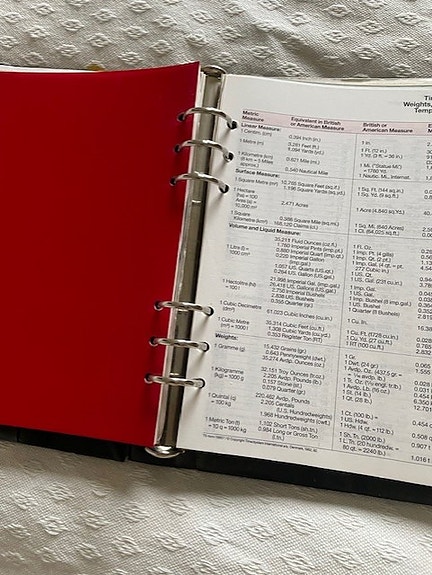 Weights,
Metric Measure Equivalent in British or American Measure British or American Measure
Linear Measure:
1 Centim. (cm) 0.394 Inch (in.) 1 In.
1 Metre (m) 3.281 Feet (ft.) 1 Ft. (12 in.)
1.094 Yards (yd.) 1 Yd. (3 ft. = 36 in.)
1 Kilometre (km) 0.621 Mile (mi.) 1 Mi. ("Statute Mi")
(8 km = 5 Miles = 1760 Yd.
approx.) 0.540 Nautical Mile 1 Nautic. Mi., Internat.
Surface Measure:
1 Square Metre (m²) 10.765 Square Feet (sq.ft.) 1 Sq. Ft. (144 sq.in.)
1.196 Square Yards (sq.yd.) 1 Sq. Yd. (9 sq.ft.)
1 Hectare
(ha) = 100 2.471 Acres 1 Acre (4.840 sq.Yd.)
Are (a) =
10,000 m²
1 Square 0.386 Square Mile (sq.mi.) 1 Sq. Mi. (640 Acres)
Kilometre (km²) 168,120 Claims (cl.) 1 Cl. (64,025 sq.ft.)
Volume and Liquid Measure:
1 Litre (l) 35.211 Fluid Ounces (oz.fl.) 1 Fl. Oz.
= 1000 cm³ 1.760 Imperial Pints (imp.pt.) 1 Imp. Pt. (4 gills)
0.880 Imperial Quart (imp.qt.) 1 Imp. Qt. (2 pt.)
0.220 Imperial Gallon 1 Imp. Gal. (4 qt. =
(imp.gal.) 277 Cubic in.)
1.057 US. Quarts (US.qt.) 1 US. Qt.
0.264 US. Gallon (US.gal.) 1 US. Gal. (231 cu.in.)
1 Hectolitre (hl) 21.998 Imperial Gal. (imp.gal.) 1 Imp. Gal.
= 100 l 26.418 US. Gallons (US.gal.) 1 US. Gal.
2.750 Imperial Bushels 1 Imp. Bushel (8 imp.gal.)
2.838 US. Bushels 1 US. Bushel
0.355 Quarter (qr.) 1 Quarter (8 Bushels)
1 Cubic Decimetre 61.023 Cubic Inches (cu.in.) 1 Cu. In.
(dm³)
1 Cubic Metre 35.314 Cubic Feet (cu.ft.) 1 Cu. Ft. (1728 cu.in.)
(m³) = 1000 l 1.308 Cubic Yards (cu.yd.) 1 Cu. Yd. (27 cu.ft.)
0.353 Register Ton (RT) 1 RT (100 cu.ft.)
Weights:
1 Gramme (g) 15.432 Grains (gr.) 1 Gr.
0.643 Pennyweight (dwt.) 1 Dwt. (24 gr.)
35.274 Avdp. Ounces (oz.)
1 Kilogramme 32.151 Troy Ounces (tr.oz.)
(kg) = 1000 g 2.205 Avdp. Pounds (lb.) 1 Avdp. Lb. (16 oz.)
0.157 Stone (st.) 1 St. (14 lb.)
0.079 Quarter (qr.) 1 Qt. (28 lb.)
1 Quintal (q) 220.462 Avdp. Pounds
= 100 kg 2.205 Centals
(U.S. Hundredweights)
1.968 Hundredweights (cwt.) 1 Ct. (100 lb.) =
US. Hdw.
1 Metric Ton (t) 1.102 Short Tons (sh.tn.) 1 Hdw. (4 qt. = 112 lb.)
= 10 q = 1000 kg 0.984 Long or Gross Ton 1 Sh. Tn. (2000 lb.)
(l.tn.) 1 L. Tn. (20 hundredw. =
80 qt. = 2240 lb.)